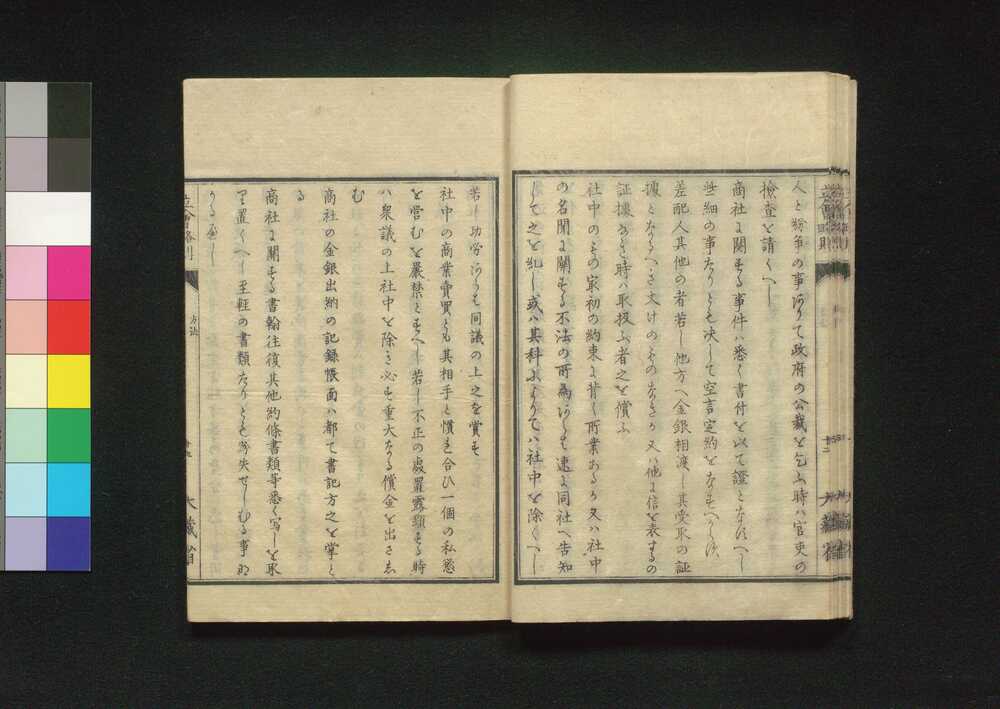 人と紛争の事ありて政府の公裁を乞ふ時ハ官吏の
撿査を請くへし
商社に関する事件ハ悉く書付を以て證となすへし
些細の事なりとも决して空言定約をなすへからす
差配人其他の者若し他方へ金銀相渡し其受取の証
拠となるへき丈けのものなきか又ハ他に信を表するの
証據なき時ハ取扱ふ者之を償ふ
社中のもの家初の約束に背く所業あるか又ハ社中
の名聞に關する不法の所為あらハ速に同社へ告知
して之を糺し或ハ其科によりてハ社中を除くへし
若し功労あらハ同議の上之を賞す
社中の商業賣買とも其相手と慣を合ひ一個の私慾
を営むを嚴禁とすへし若し不正の處置露顕する時
ハ衆議の上社中を除き必す重大なる償金を出さし
む
商社の金銀出納の記録帳面ハ都て書記方之を掌と
る
商社に關する書翰往復其他約條書類等悉く寫しを取
り置くへし至軽の書類なりとも紛失せしむる事な
かるへし
立會略則
方法
大藏省